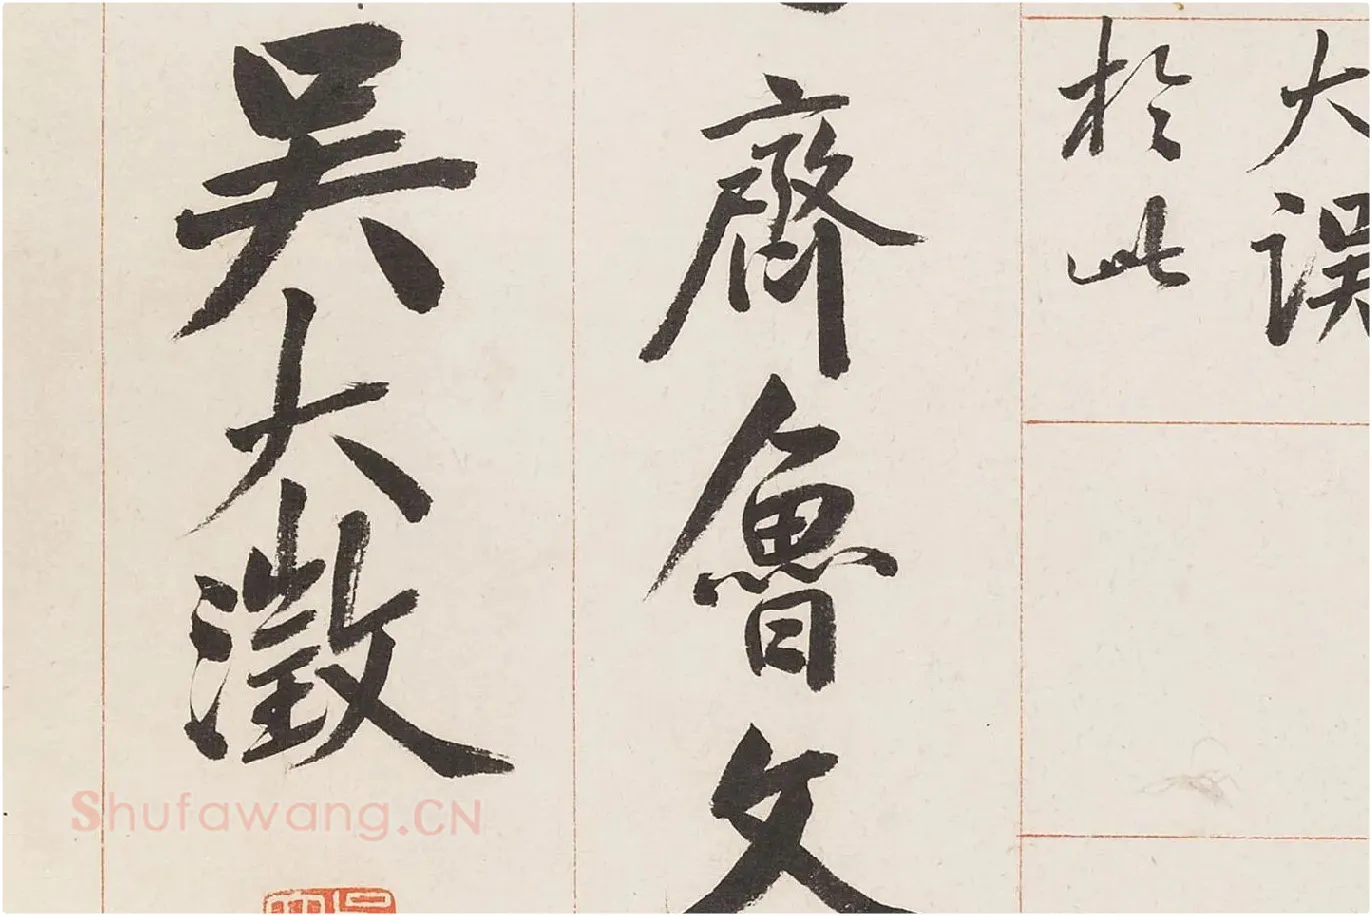 大误
於此
齊魯文
吴大澂
Shufawang.CN